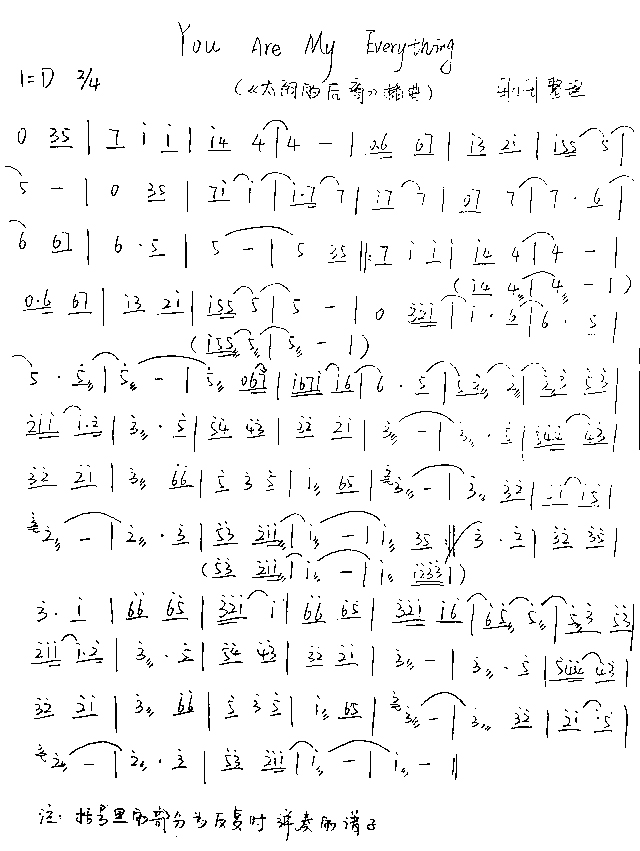 You Are My Everything
1=D 2/4 (《太阳的后裔》插曲) 整理
0 35 | 7 i i | i4 4 | 4 - | 0.6 67 | i3 2i | i55 5 |
5 - | 0 35 | 7i i | i.7 7 | i7 7 | 07 7 | 7 . 6 |
6 67 | 6 . 5 | 5 - | 5 35 ||: 7 i i | i4 4 | 4 - |
(i4 4 | 4 - |)
0.6 67 | i3 2i | i55 5 | 5 - | 0 32i | i . 6 | 6 . 5 |
(i55 5 | 5 - |)
5 . 5 | 5 - | 5 067 | i67i i6 | 6 . 5 | 53 2 | 23 53 |
2ii i.2 | 3 . 5 | 54 43 | 32 2i | 3 - | 3 . 5 | 544 43 |
32 2i | 3 66 | 5 3 5 | i 65 | 3 - | 3 32 | 2i i5 |
2 - | 2 . 3 | 53 2ii | i - | i 35 :|| 3 . 2 | 32 35 |
(53 2ii | i - | i i233 |)
3 . i | 66 65 | 32i i | 66 65 | 32i i6 | 65 5 | 53 53 |
2ii i.2 | 3 . 5 | 54 43 | 32 2i | 3 - | 3 . 5 | 544 43 |
32 2i | 3 66 | 5 3 5 | i 65 | 3 - | 3 32 | 2i .5 |
2 - | 2 . 3 | 53 2ii | i - | i - ||
注: 括号里的部分为反复时弹奏的谱子